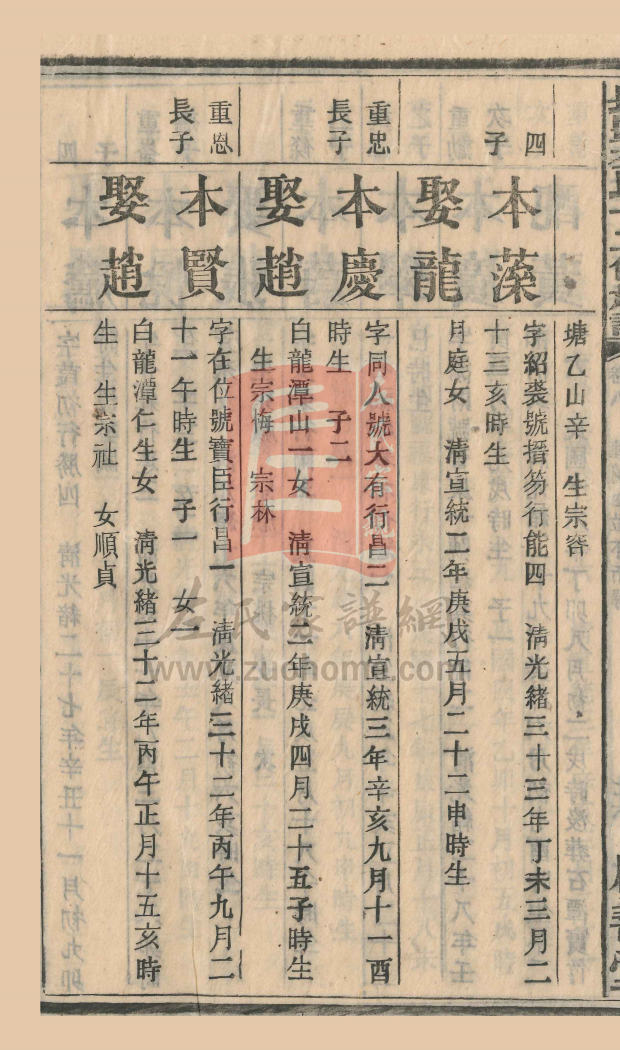 塘乙山辛 生宗容
四子
本藻
字紹裘號搢笏行能四 清光緒三十三年丁未三月二
十三亥時生
娶龍
月庭女 清宣統二年庚戌五月二十二申時生
重忠長子
本慶
字同人號大有行昌二 清宣統三年辛亥九月十一酉
時生 子二
娶趙
白龍潭山一女 清宣統二年庚戌四月二十五子時生
生宗梅 宗林
重恩長子
本賢
字在位號寶臣行昌一 清光緒三十二年丙午九月二
十一午時生 子一 女一
娶趙
白龍潭仁生女 清光緒三十二年丙午正月十五亥時
生 生宗社 女順貞
左氏家譜網
www.zuohome.com